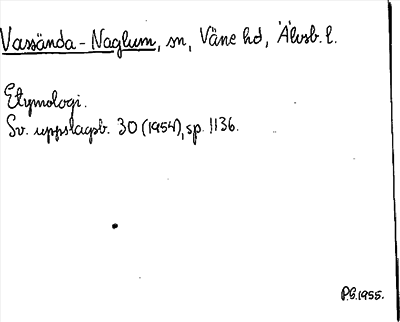 Vassända-Naglum, sn, Väne hd, Älvsb. l.
Etymologi.
Sv. uppslagsb. 30 (1954), sp. 1136.
P.G. 1955.